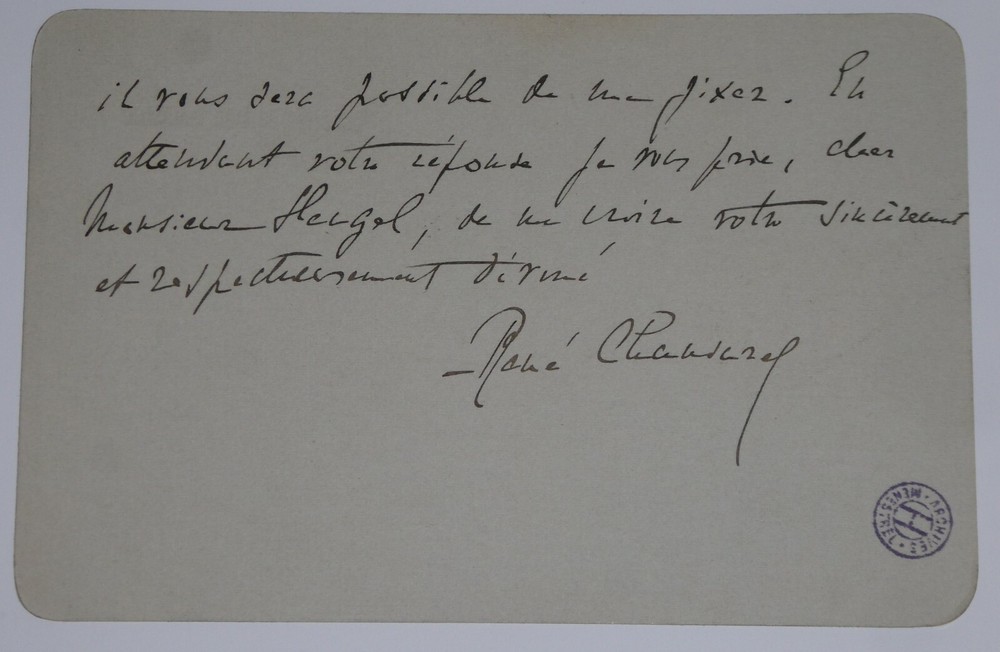 il vous sera possible de me fixer. En
attendant votre réponse je vous prie, cher
Monsieur Heugel, de me croire votre sincèrement
et respectueusement dévoué
René Chansarel
ARCHIVES · MENESTREL · H